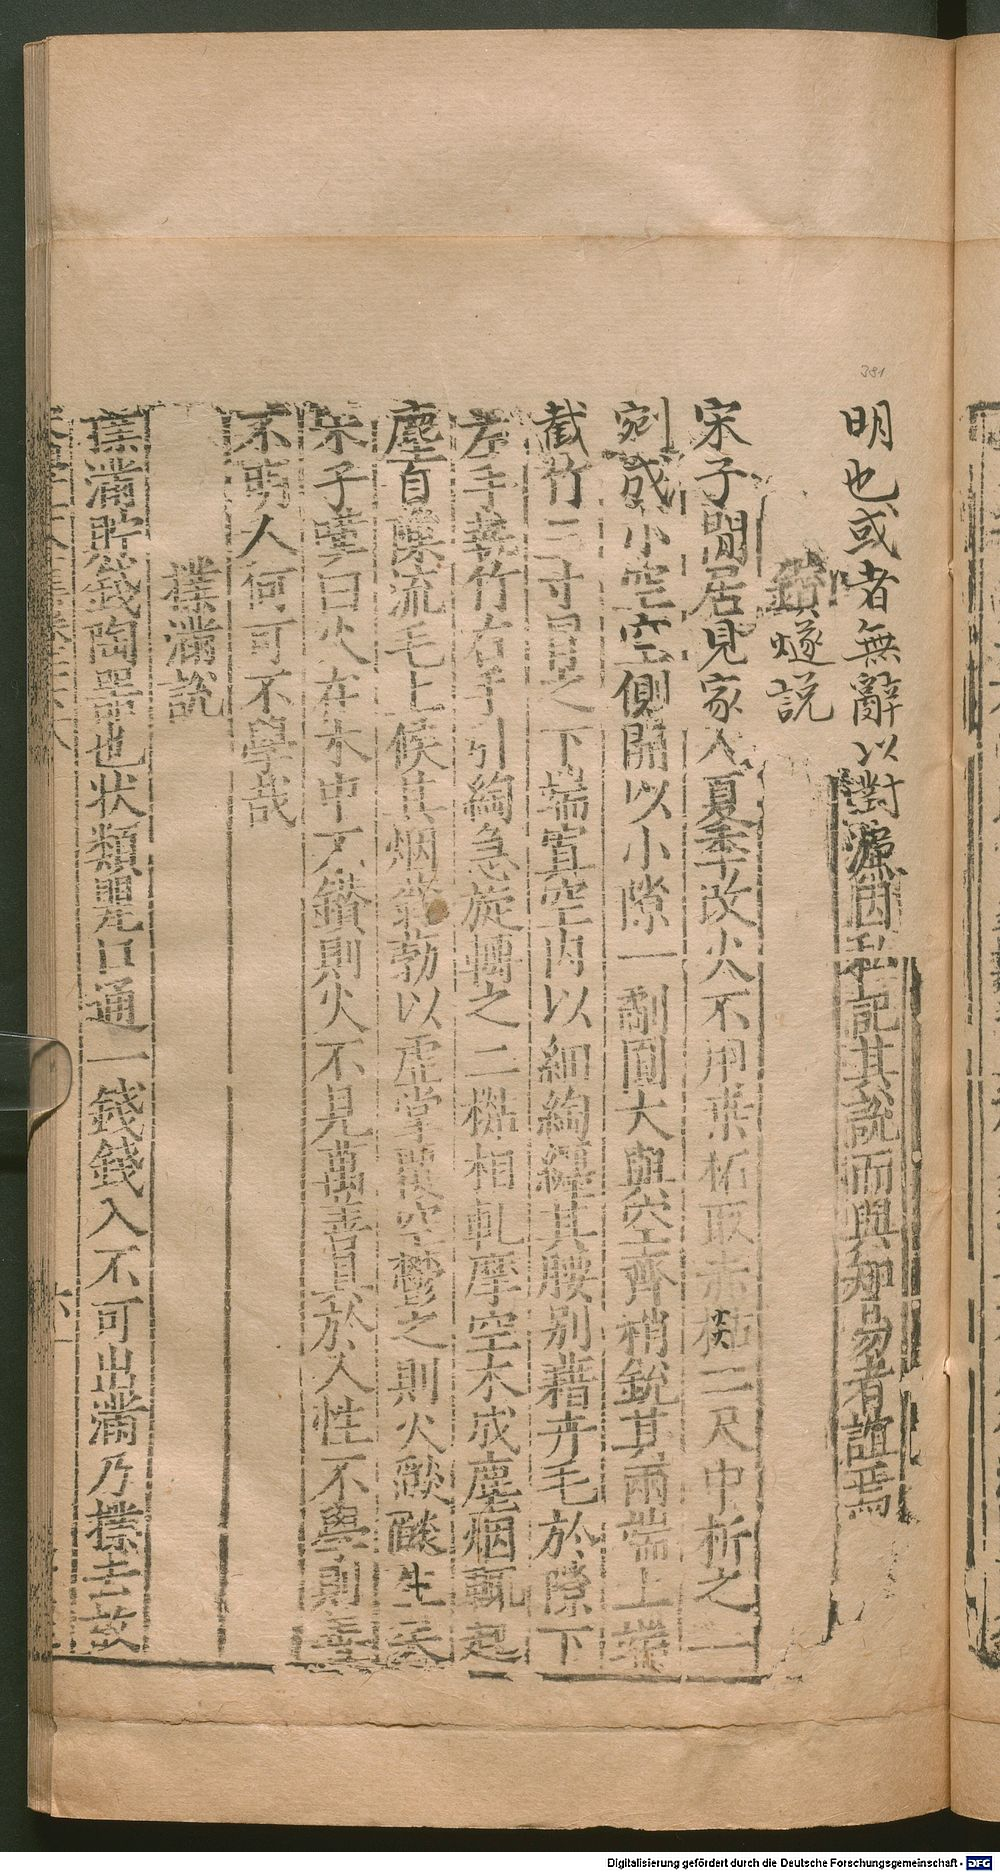 391
明也或者無辭以對濂因私記其説而與知昜者誼焉
鑽燧説
宋子閒居見家人夏季改火不用桒柘取赤樜二尺中析之一
剜成小空空側開以小隙一剸圓大與空齊稍銳其兩端上端
截竹三寸冒之下端寘空内以細綯纏其腰别藉卉毛於隙下
左手執竹右手引綯急旋轉之二樜相軋摩空木成塵烟輒起
塵自隙流毛上候其烟蓊勃以虛掌覆空鬱之則火燄𦦨生矣
宋子嘆曰火在木中不鑽則火不見萬善具於人性不學則善
不明人何可不學哉
撲滿説
撲滿貯錢陶噐也状類甖口通一錢錢入不可出滿乃撲去故
Digitalisierung gefördert durch die Deutsche Forschungsgemeinschaft - DFG